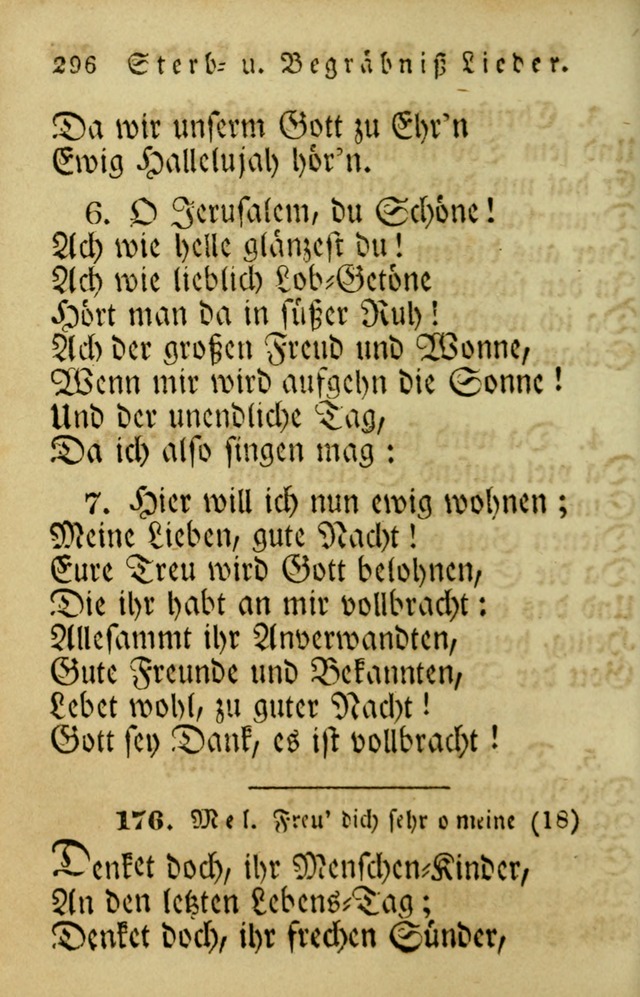 296 Sterb- u. Begräbniß Lieder.
Da wir unserm Gott zu Ehr'n
Ewig Hallelujah hör'n.
6. O Jerusalem, du Schöne!
Ach wie helle glänzest du!
Ach wie lieblich Lob-Getöne
Hört man da in süßer Ruh!
Ach der großen Freud und Wonne,
Wenn mir wird aufgehn die Sonne!
Und der unendliche Tag,
Da ich also singen mag:
7. Hier will ich nun ewig wohnen;
Meine Lieben, gute Nacht!
Eure Treu wird Gott belohnen,
Die ihr habt an mir vollbracht:
Allesammt ihr Anverwandten,
Gute Freunde und Bekannten,
Lebet wohl, zu guter Nacht!
Gott sey Dank, es ist vollbracht!
176. Mel. Freu' dich sehr o meine (18)
Denket doch, ihr Menschen-Kinder,
An den letzten Lebens-Tag;
Denket doch, ihr frechen Sünder,